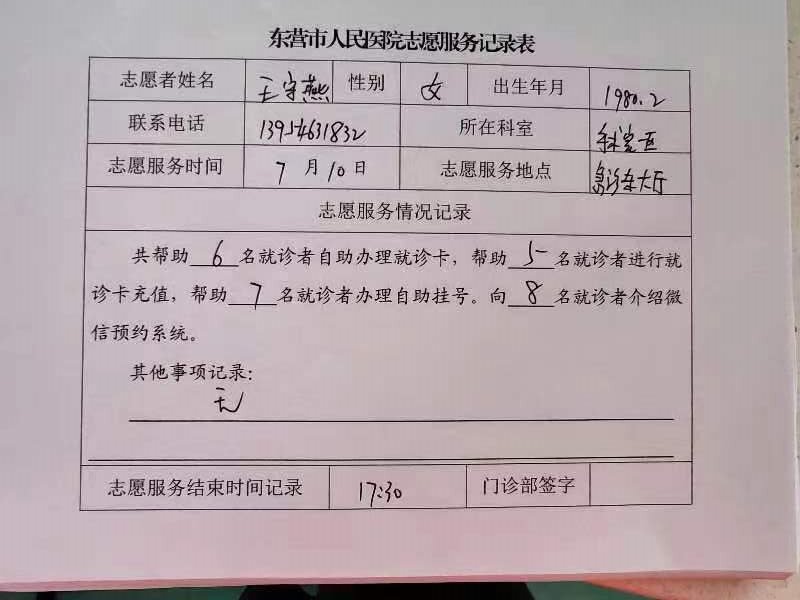 东营市人民医院志愿服务记录表
志愿者姓名 王守燕 性别 女 出生年月 1980.2
联系电话 13954631832 所在科室
志愿服务时间 7月10日 志愿服务地点 大厅
志愿服务情况记录
共帮助6名就诊者自助办理就诊卡，帮助5名就诊者进行就
诊卡充值，帮助7名就诊者办理自助挂号。向8名就诊者介绍微
信预约系统。
其他事项记录：
无
志愿服务结束时间记录 17:30 门诊部签字